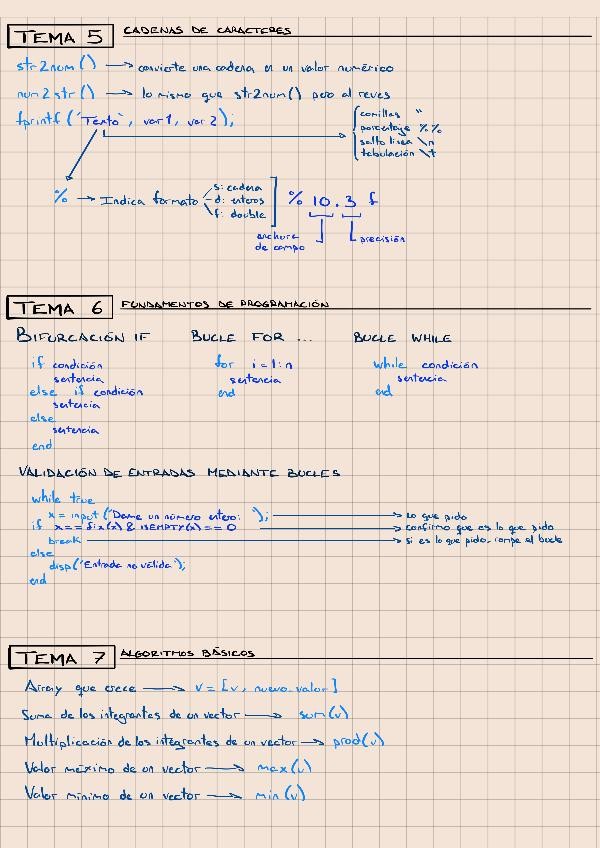 TEMA 5 CADENAS DE CARACTERES
str2num() → convierte una cadena en un valor numérico
num2str() → lo mismo que str2num() pero al reves
fprintf ('Texto', var1, var2);
comillas ''
porcentaje %%
salto linea \n
tabulación \t
% → Indica formato
s: cadena
d: enteros
f: double
% 10.3 f
anchura de campo
precisión
TEMA 6 FUNDAMENTOS DE PROGRAMACIÓN
BIFURCACIÓN IF BUCLE FOR ... BUCLE WHILE
if condición for i=1:n while condición
sentencia sentencia sentencia
else if condición end end
sentencia
else
sentencia
end
VALIDACIÓN DE ENTRADAS MEDIANTE BUCLES
while true
x = input ('Dame un número entero: '); → lo que pido
if x == fix(x) & ISEMPTY(x) == 0 → confirmo que es lo que pido
break → si es lo que pido, rompe el bucle
else
disp('Entrada no válida');
end
TEMA 7 ALGORITMOS BÁSICOS
Array que crece → v = [v, nuevo_valor]
Suma de los integrantes de un vector → sum(v)
Multiplicación de los integrantes de un vector → prod(v)
Valor máximo de un vector → max(v)
Valor mínimo de un vector → min(v)